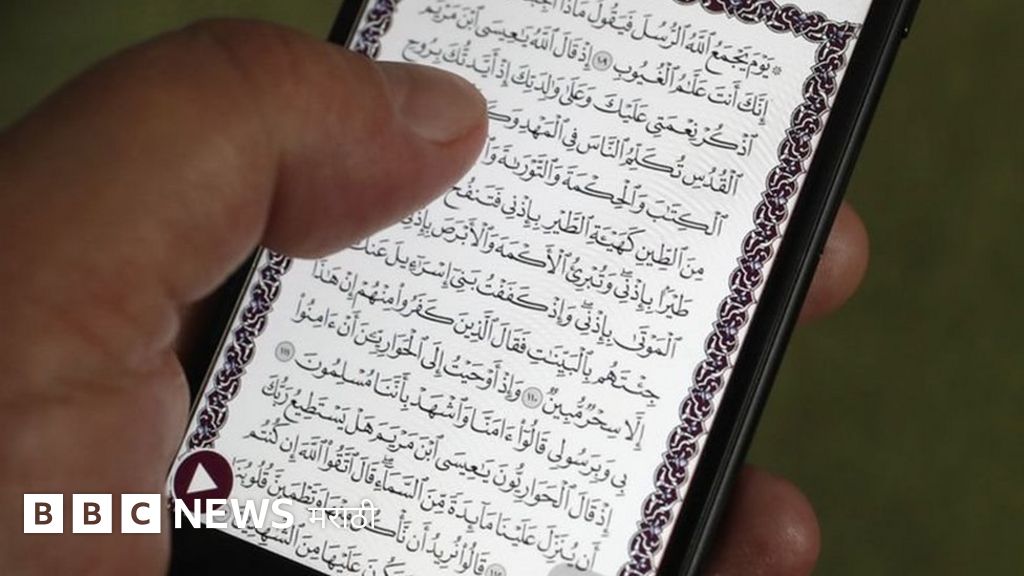 ۞ يَوْمَ يَجْمَعُ ٱللَّهُ ٱلرُّسُلَ فَيَقُولُ مَاذَآ
إِنَّكَ أَنتَ عَلَّٰمُ ٱلْغُيُوبِ ١٠٩ إِذْ قَالَ ٱللَّهُ يَٰعِيسَى ٱبْنَ مَرْيَمَ
ٱذْكُرْ نِعْمَتِى عَلَيْكَ وَعَلَىٰ وَٰلِدَتِكَ إِذْ أَيَّدتُّكَ بِرُوحِ
ٱلْقُدُسِ تُكَلِّمُ ٱلنَّاسَ فِى ٱلْمَهْدِ
ٱلْكِتَٰبَ وَٱلْحِكْمَةَ وَٱلتَّوْرَىٰةَ
مِنَ ٱلطِّينِ كَهَيْـَٔةِ ٱلطَّيْرِ بِإِذْنِى فَتَنفُخُ
طَيْرًۢا بِإِذْنِى وَتُبْرِئُ ٱلْأَكْمَهَ وَٱلْأَبْرَصَ بِإِذْنِى
ٱلْمَوْتَىٰ بِإِذْنِى وَإِذْ كَفَفْتُ بَنِىٓ إِسْرَٰٓءِيلَ عَنكَ
جِئْتَهُم بِٱلْبَيِّنَٰتِ فَقَالَ ٱلَّذِينَ كَفَرُوا۟ مِنْهُمْ إِنْ هَٰذَآ
إِلَّا سِحْرٌ مُّبِينٌ ١١٠ وَإِذْ أَوْحَيْتُ إِلَى ٱلْحَوَارِيِّـۧنَ أَنْ ءَامِنُوا۟
بِى وَبِرَسُولِى قَالُوٓا۟ ءَامَنَّا وَٱشْهَدْ بِأَنَّنَا مُسْلِمُونَ ١١١
إِذْ قَالَ ٱلْحَوَارِيُّونَ يَٰعِيسَى ٱبْنَ مَرْيَمَ هَلْ يَسْتَطِيعُ رَبُّكَ
أَن يُنَزِّلَ عَلَيْنَا مَآئِدَةً مِّنَ ٱلسَّمَآءِ قَالَ ٱتَّقُوا۟ ٱللَّهَ إِن كُنتُم
١١٢ قَالُوا۟ نُرِيدُ أَن نَّأْكُلَ مِنْهَا وَتَطْمَئِنَّ قُلُوبُنَا
عَلَيْهَا مِنَ ٱلشَّٰهِدِينَ
BBC NEWS मराठी